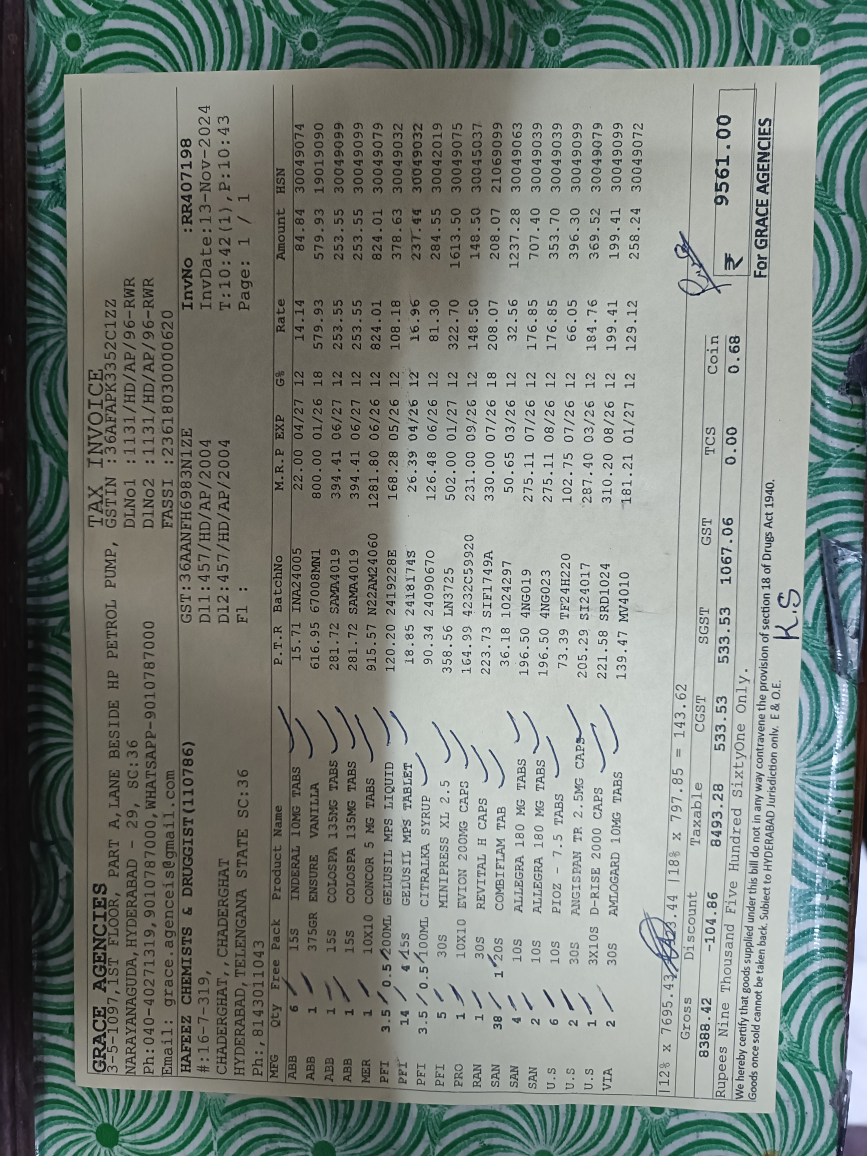 GRACE AGENCIES TAX INVOICE
3-5-1097,1ST FLOOR, PART A,LANE BESIDE HP PETROL PUMP, GSTIN :36AFAPK3352C1ZZ
NARAYANAGUDA,HYDERABAD - 29, SC:36 DlNo1 :1131/HD/AP/96-RWR
Ph:040-40271319,9010787000,WHATSAPP-9010787000 DlNo2 :1131/HD/AP/96-RWR
Email: grace.agenceis@gmail.com FASSI :23618030000620
HAFEEZ CHEMISTS & DRUGGIST(110786) GST:36AANFH6983N1ZE InvNo :RR407198
#:16-7-319, D11:457/HD/AP/2004 InvDate:13-Nov-2024
CHADERGHAT,,CHADERGHAT D12:457/HD/AP/2004 T:10:42(1),P:10:43
HYDERABAD,TELENGANA STATE SC:36 Fl : Page: 1 / 1
Ph:,8143011043
MFG Qty Free Pack Product Name P.T.R BatchNo M.R.P EXP G% Rate Amount HSN
ABB 6 15S INDERAL 10MG TABS 15.71 INA24005 22.00 04/27 12 14.14 84.84 30049074
ABB 1 375GR ENSURE VANILLA 616.95 67008MN1 800.00 01/26 18 579.93 579.93 19019090
ABB 1 15S COLOSPA 135MG TABS 281.72 SAMA4019 394.41 06/27 12 253.55 253.55 30049099
ABB 1 15S COLOSPA 135MG TABS 281.72 SAMA4019 394.41 06/27 12 253.55 253.55 30049099
MER 1 10X10 CONCOR 5 MG TABS 915.57 N22AM24060 1281.80 06/26 12 824.01 824.01 30049079
PFI 3.5 0.5 200ML GELUSIL MPS LIQUID 120.20 2419228E 168.28 05/26 12 108.18 378.63 30049032
PFI 14 4 15S GELUSIL MPS TABLET 18.85 2418174S 26.39 04/26 12 16.96 237.44 30049032
PFI 3.5 0.5 100ML CITRALKA SYRUP 90.34 24090670 126.48 06/26 12 81.30 284.55 30042019
PFI 5 30S MINIPRESS XL 2.5 358.56 LN3725 502.00 01/27 12 322.70 1613.50 30049075
PRO 1 10X10 EVION 200MG CAPS 164.99 4232C59920 231.00 09/26 12 148.50 148.50 30045037
RAN 1 30S REVITAL H CAPS 223.73 SIF1749A 330.00 07/26 18 208.07 208.07 21069099
SAN 38 1 20S COMBIFLAM TAB 36.18 1024297 50.65 03/26 12 32.56 1237.28 30049063
SAN 4 10S ALLEGRA 180 MG TABS 196.50 4NG019 275.11 07/26 12 176.85 707.40 30049039
SAN 2 10S ALLEGRA 180 MG TABS 196.50 4NG023 275.11 08/26 12 176.85 353.70 30049039
U.S 6 10S PIOZ - 7.5 TABS 73.39 TF24H220 102.75 07/26 12 66.05 396.30 30049099
U.S 2 30S ANGISPAN TR 2.5MG CAPS 205.29 SI24017 287.40 03/26 12 184.76 369.52 30049079
U.S 1 3X10S D-RISE 2000 CAPS 221.58 SRD1024 310.20 08/26 12 199.41 199.41 30049099
VIA 2 30S AMLOGARD 10MG TABS 139.47 MV4010 181.21 01/27 12 129.12 258.24 30049072
|12% x 7695.43 |18% x 797.85 = 143.62
Gross Discount Taxable CGST SGST GST TCS Coin
8388.42 -104.86 8493.28 533.53 533.53 1067.06 0.00 0.68 ₹ 9561.00
Rupees Nine Thousand Five Hundred SixtyOne Only.
We hereby certify that goods supplied under this bill do not in any way contravene the provision of section 18 of Drugs Act 1940. For GRACE AGENCIES
Goods once sold cannot be taken back. Subject to HYDERABAD Jurisdiction only. E & O.E.
K.S